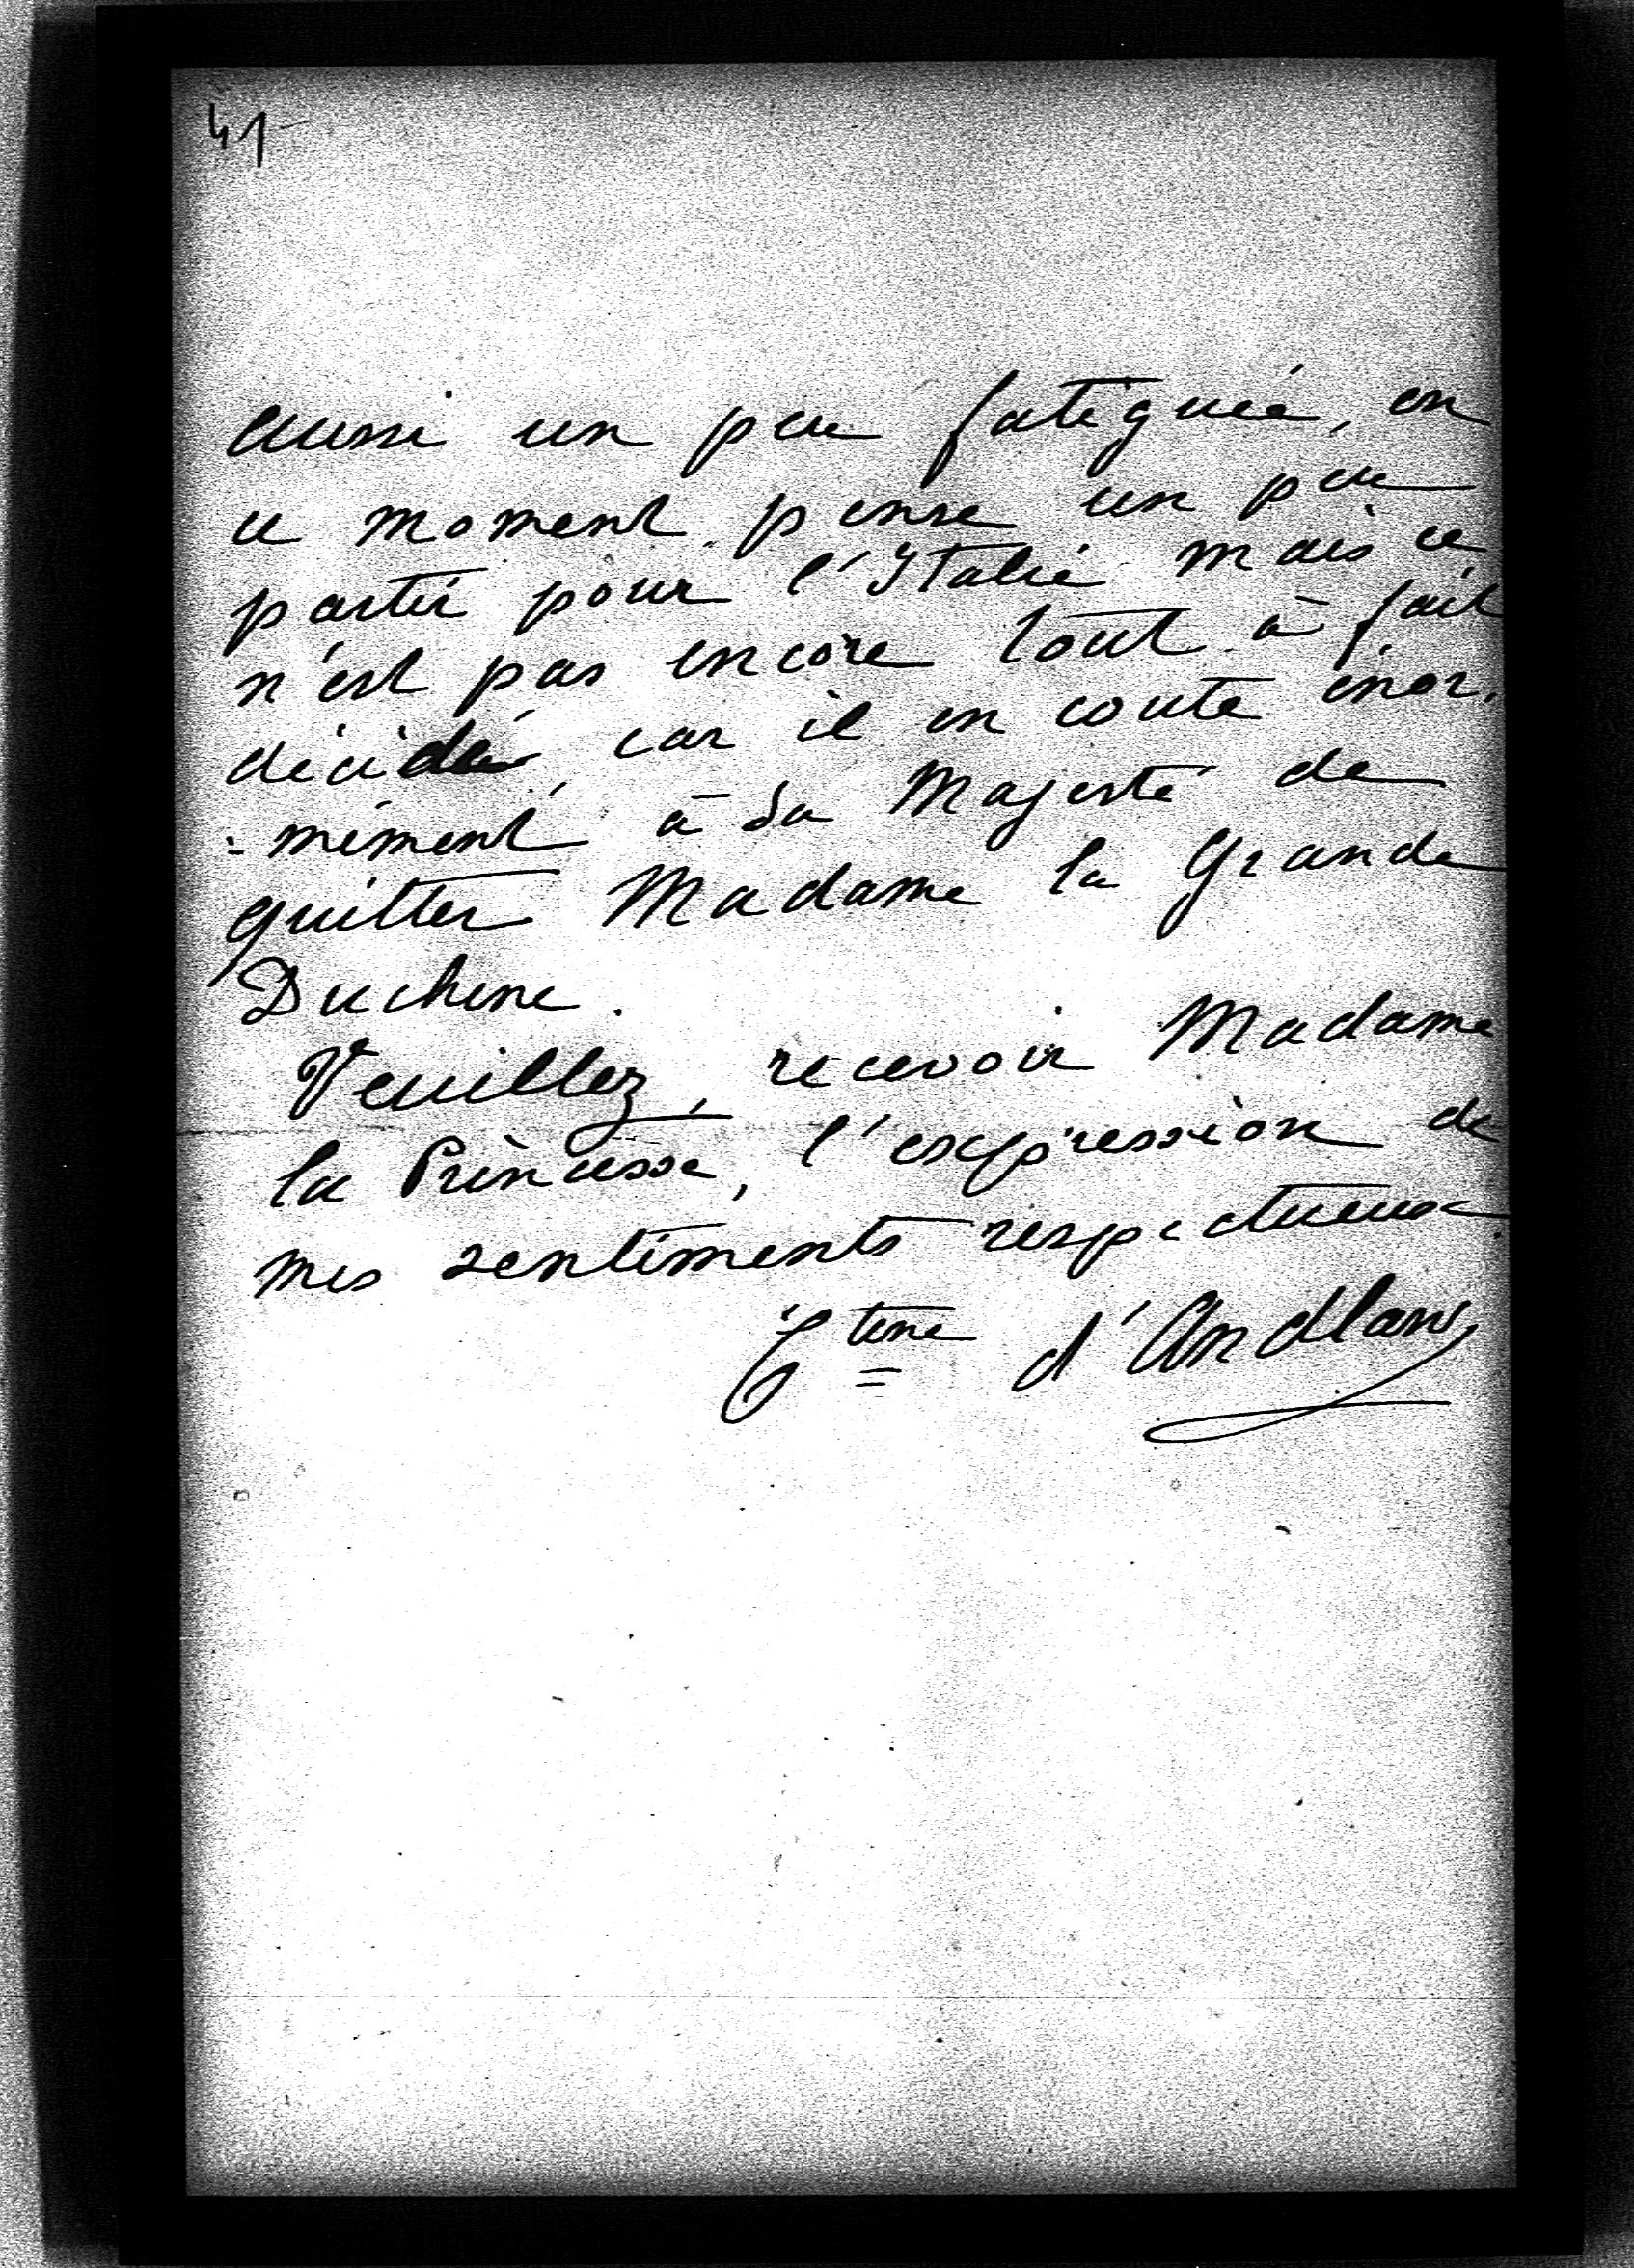 41
aussi un peu fatiguée, en
ce moment pense un peu
partir pour l'Italie mais ce
n'est pas encore tout à fait
décidé, car il en coute énor.
=mément à Sa Majesté de
quitter Madame la Grande
Duchesse.
Veuillez, recevoir Madame
la Princesse, l'expression de
mes sentiments respectueux
Ctesse d'Andlaw